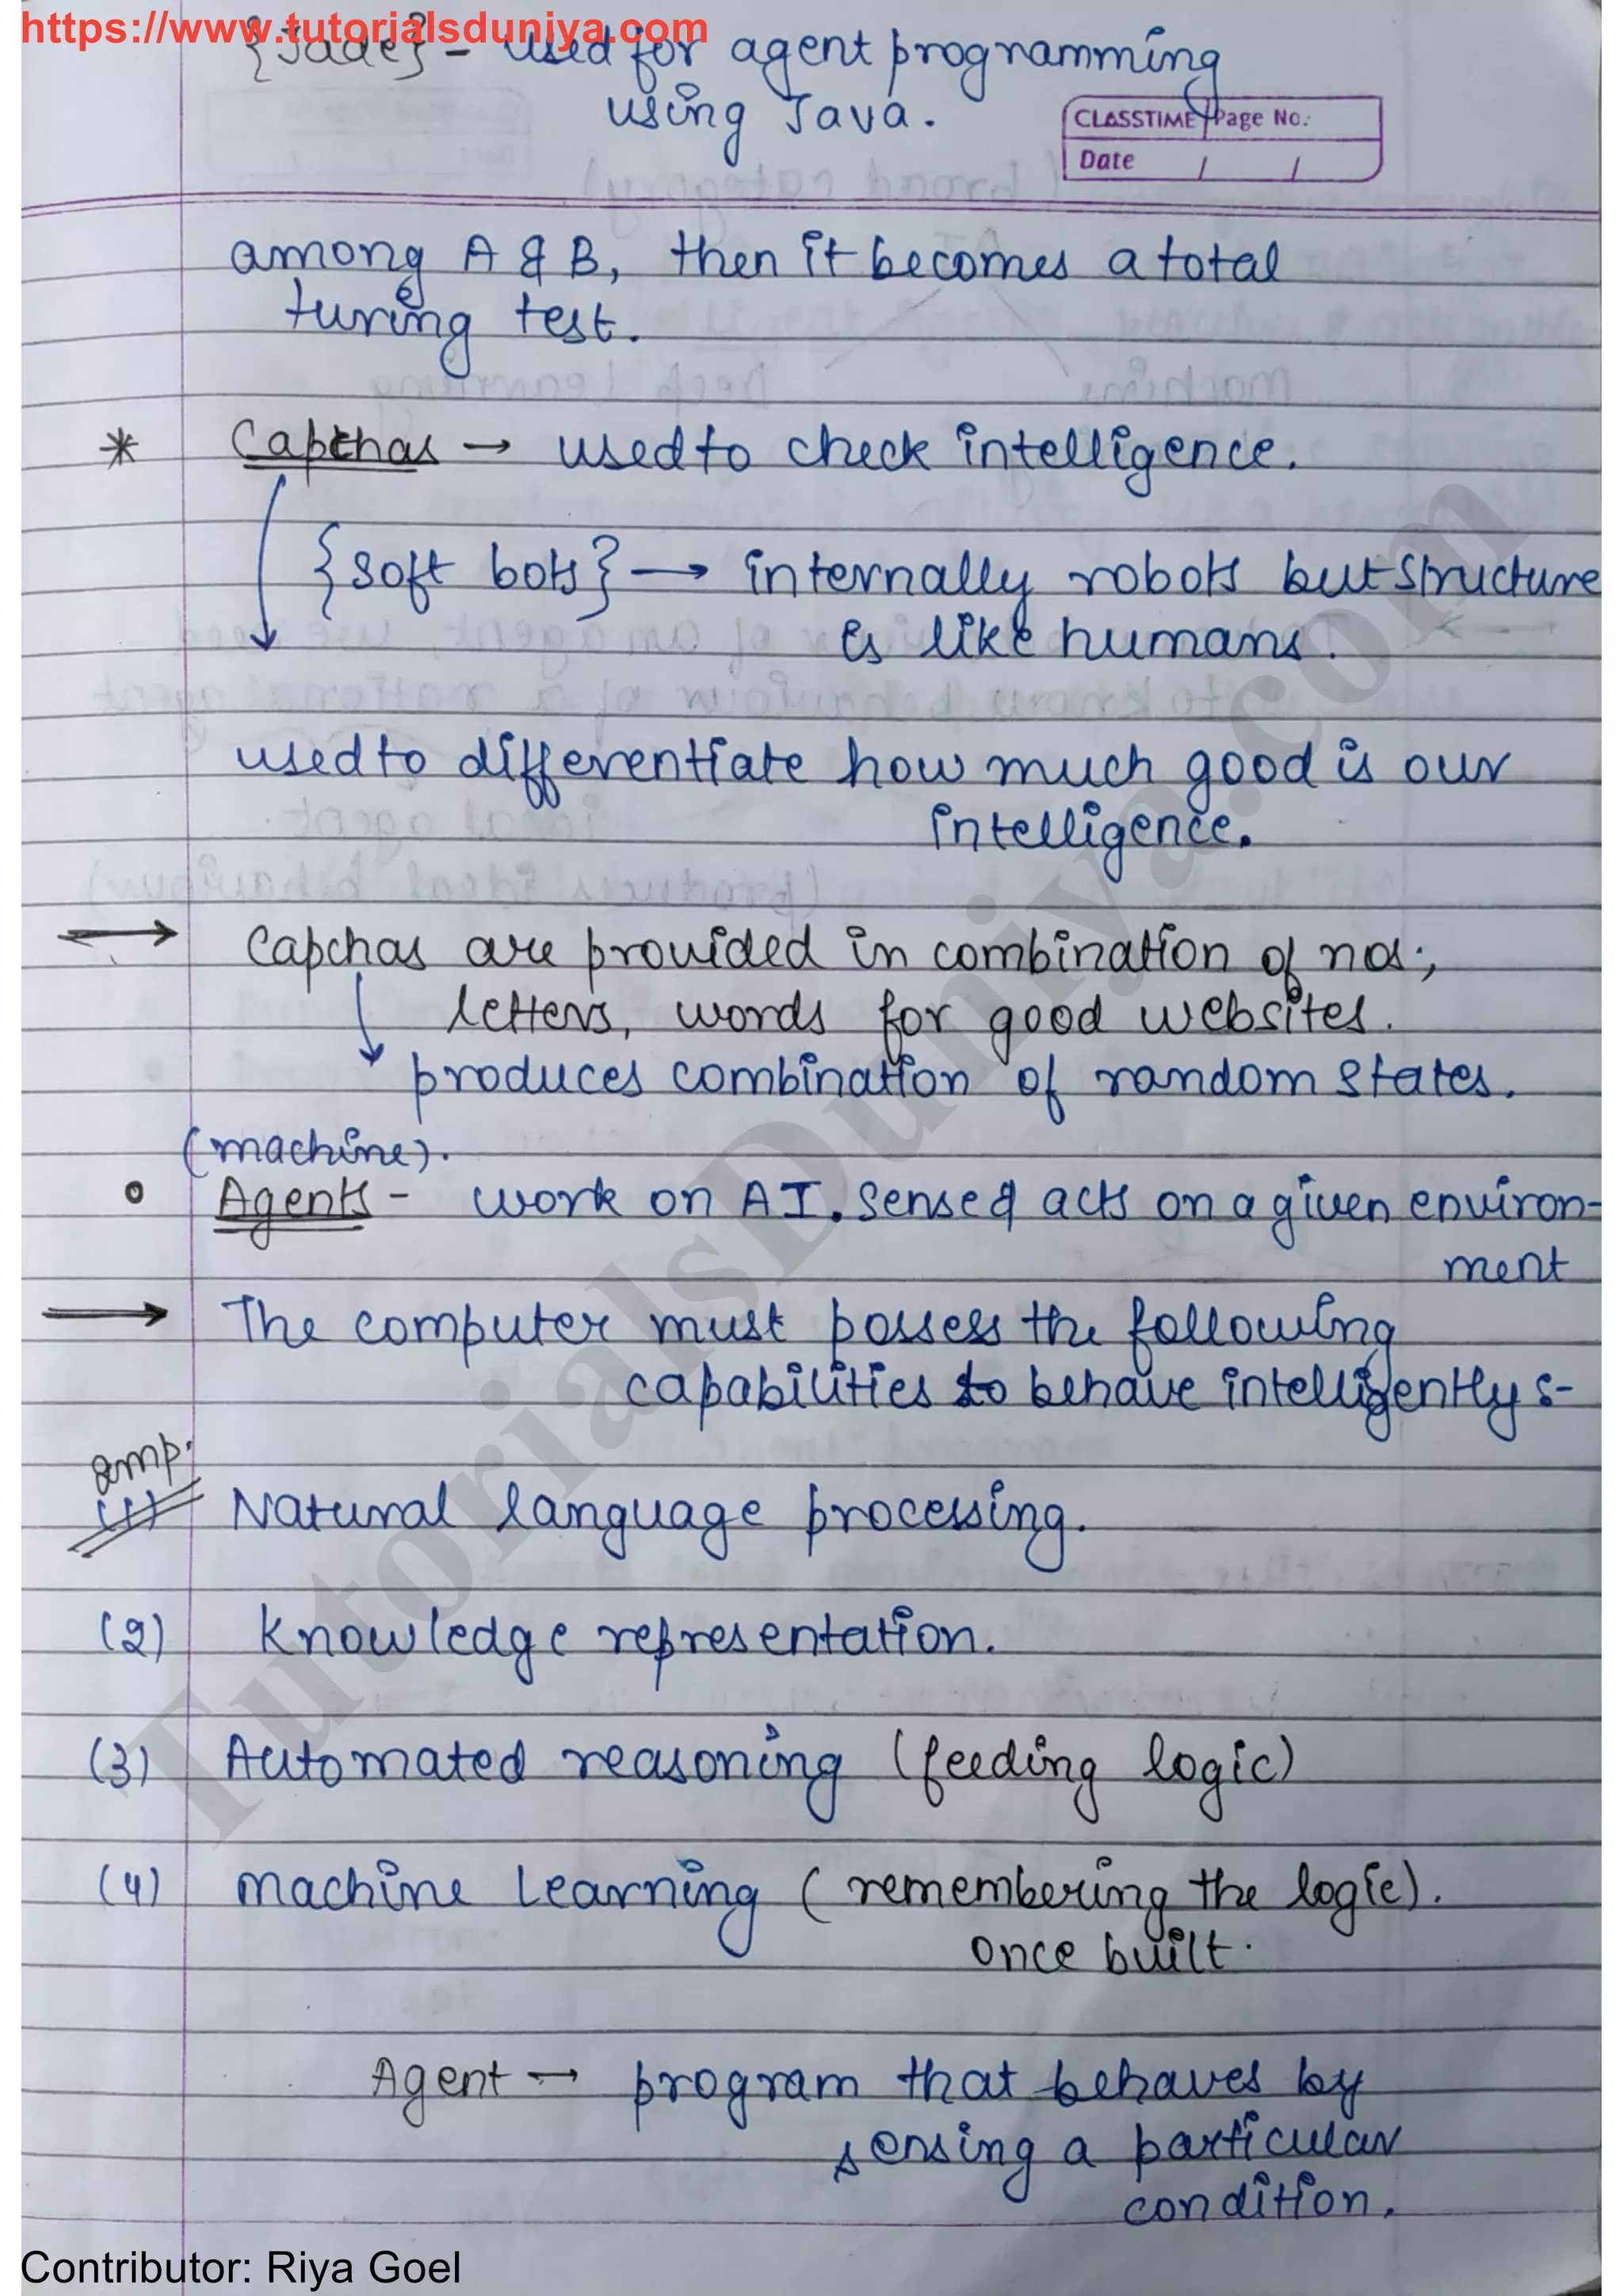 https://www.tutorialsduniya.com
{Jade} - used for agent programming
using Java.
CLASSTIME Page No.:
Date / /
among A & B, then it becomes a total
turing test.
* Capchas → used to check intelligence.
{soft bots} → internally robots but structure
is like humans.
used to differentiate how much good is our
intelligence.
→ Capchas are provided in combination of nos.,
letters, words for good websites.
produces combination of random states.
(machine).
• Agents - work on AI. sense & acts on a given environ-
ment
→ The computer must possess the following
capabilities to behave intelligently :-
imp.
(1) Natural language processing.
(2) Knowledge representation.
(3) Automated reasoning (feeding logic)
(4) Machine Learning (remembering the logic).
once built.
Agent → program that behaves by
sensing a particular
condition.
TutorialsDuniya.com
Contributor: Riya Goel